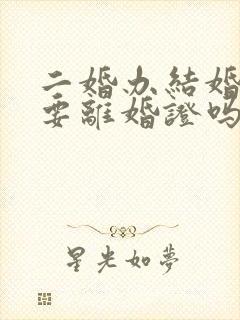 二婚办结婚
要離婚證吗
星光如夢